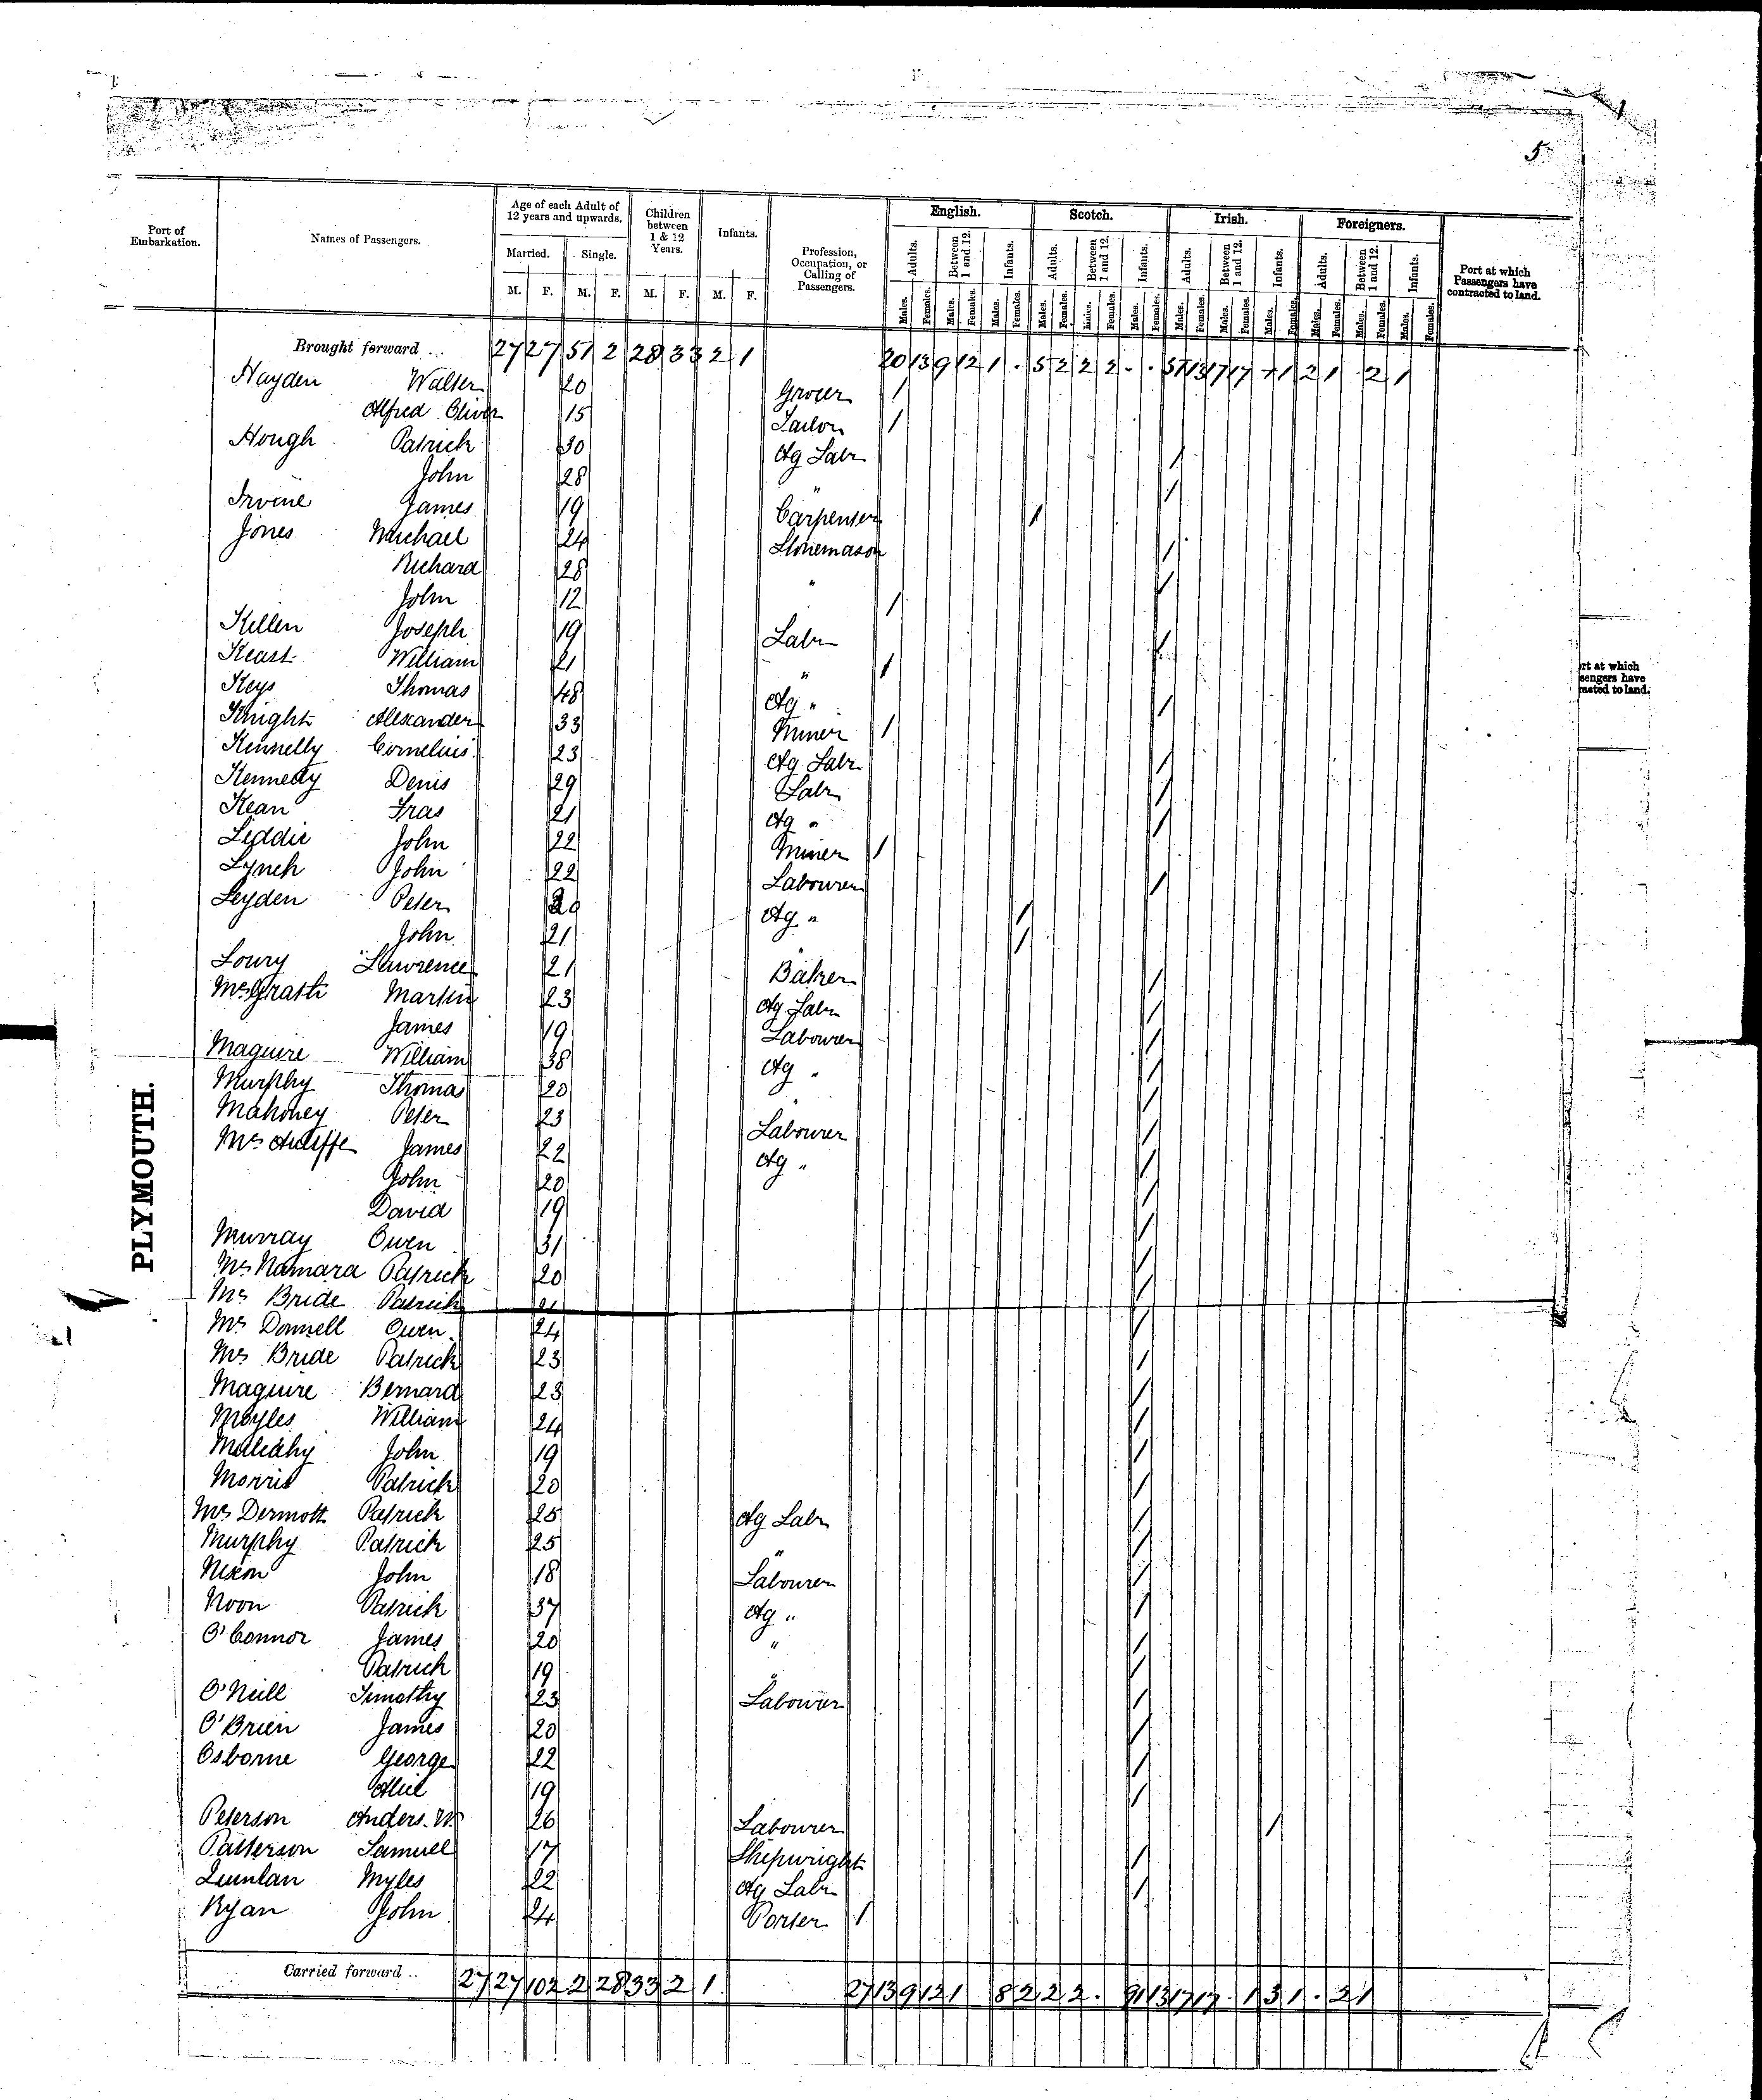 5
Port of Embarkation. Names of Passengers. Age of each Adult of 12 years and upwards. Children between 1 & 12 Years. Infants. Profession, Occupation, or Calling of Passengers. English. Scotch. Irish. Foreigners. Port at which Passengers have contracted to land.
Married. Single. Adults. Between 1 and 12. Infants. Adults. Between 1 and 12. Infants. Adults. Between 1 and 12. Infants. Adults. Between 1 and 12. Infants.
M. F. M. F. M. F. M. F. Males. Females. Males. Females. Males. Females. Males. Females. Males. Females. Males. Females. Males. Females. Males. Females. Males. Females. Males. Females. Males. Females. Males. Females.
Brought forward .. 27 27 51 2 28 33 2 1 20 13 9 12 1 . 5 2 2 2 . . 51 13 17 17 + 1 2 1 . 2 1
Hayden Walter 20 Grocer /
Alfred Oliver 15 Tailor /
Hough Patrick 30 Ag Labr /
John 28 " /
Irvine James 19 Carpenter /
Jones Michael 24 Stonemason /
Richard 28 " /
John 12 /
Killen Joseph 19 Labr /
Keast William 21 " /
Keys Thomas 48 Ag " /
Knight Alexander 33 Miner /
Kennelly Cornelius 23 Ag Labr /
Kennedy Denis 29 Labr /
Kean Fras 21 Ag " /
Liddie John 22 Miner /
Lynch John 22 Labourer /
Leyden Peter 29 Ag " /
John 21 /
Lowry Lawrence 21 Baker /
McGrath Martin 23 Ag Labr /
James 19 Labourer /
Maguire William 38 Ag " /
Murphy Thomas 20 " /
Mahoney Peter 23 Labourer /
McAuliffe James 22 Ag " /
John 20 /
David 19 /
Murray Owen 31 /
McNamara Patrick 20 /
McBride Patrick 21 /
McDonnell Owen 24 /
McBride Patrick 23 /
Maguire Bernard 23 /
Moyles William 24 /
Mulcahy John 19 /
Morris Patrick 20 /
McDermott Patrick 25 Ag Labr /
Murphy Patrick 25 " /
Nixon John 18 Labourer /
Noon Patrick 37 Ag " /
O'Connor James 20 " /
Patrick 19 " /
O'Neill Timothy 23 Labourer /
O'Brien James 20 /
Osborne George 22 /
19 /
Peterson Anders. W. 26 Labourer /
Patterson Samuel 17 Shipwright /
Quinlan Myles 22 Ag Labr /
Ryan John 24 Porter /
Carried forward .. 27 27 102 2 28 33 2 1 27 13 9 12 1 8 2 2 2 . 91 13 17 17 . 1 3 1 . 2 1
PLYMOUTH.
rt at which
sengers have
racted to land.